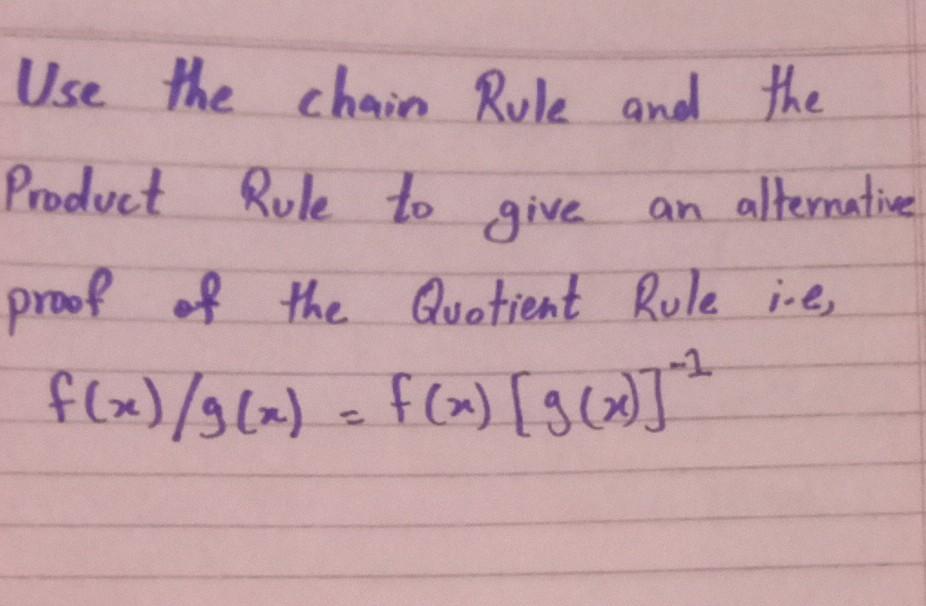 Use the chain Rule and the
Product Rule to give an alternative
proof of the Quotient Rule i.e,
f(x)/g(x) = f(x) [g(x)]⁻¹